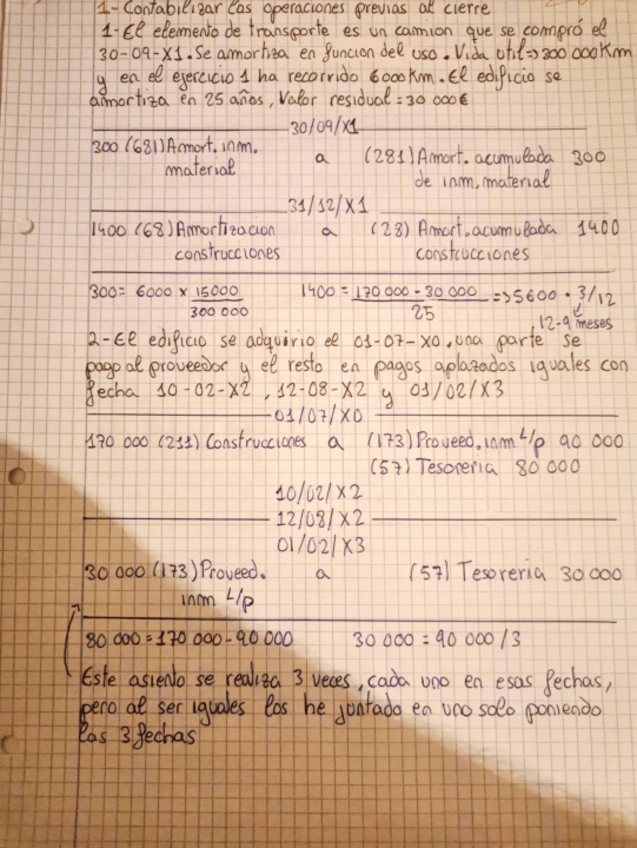 1- Contabilizar las operaciones previas al cierre
1-El elemento de transporte es un camion que se compró el
30-09-X1. Se amortiza en funcion del uso. Vida util=>300 000Km
y en el ejercicio 1 ha recorrido 6000Km. El edificio se
amortiza en 25 años, Valor residual = 30 000€
30/09/X1
300 (681) Amort. inm. a (281) Amort. acumulada 300
material de inm. material
31/12/X1
1400 (68) Amortizacion a (28) Amort. acumulada 1400
construcciones construcciones
300= 6000 x 15000/300 000 1400 = 170 000 - 30 000/25 => 5600 · 3/12
12-9 meses
2-El edificio se adquirio el 01-07-X0, una parte se
pago al proveedor y el resto en pagos aplazados iguales con
fecha 10-02-X2, 12-08-X2 y 01/02/X3
01/07/X0
170 000 (211) Construcciones a (173) Proveed. inm L/p 90 000
(57) Tesoreria 80 000
10/02/X2
12/08/X2
01/02/X3
30 000 (173) Proveed. a (57) Tesoreria 30 000
inm L/p
80 000 = 170 000 - 90 000 30 000 = 90 000 /3
Este asiento se realiza 3 veces, cada uno en esas fechas,
pero al ser iguales los he juntado en uno solo poniendo
las 3 fechas